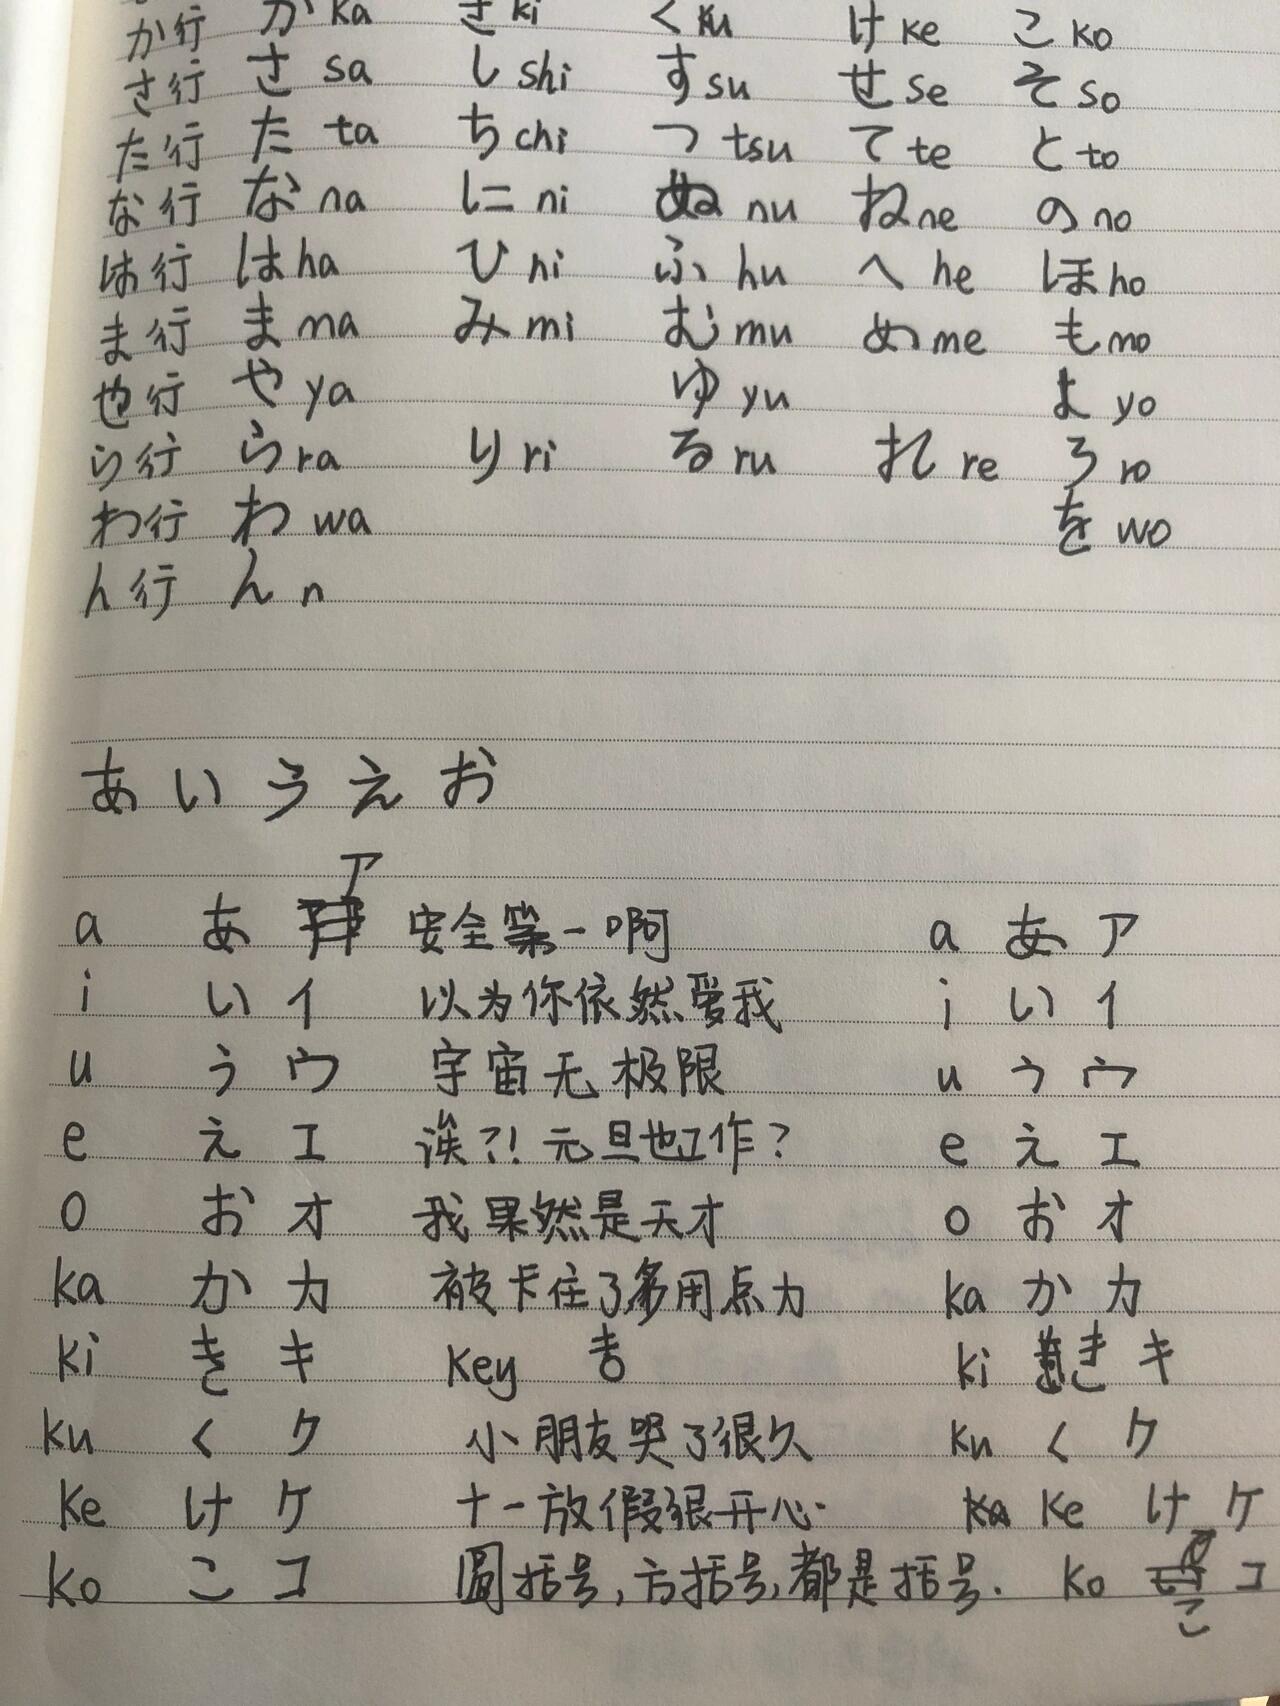 か行 か ka き ki く ku け ke こ ko
さ行 さ sa し shi す su せ se そ so
た行 た ta ち chi つ tsu て te と to
な行 な na に ni ぬ nu ね ne の no
は行 は ha ひ hi ふ hu へ he ほ ho
ま行 ま ma み mi む mu め me も mo
也行 や ya ゆ yu よ yo
ら行 ら ra り ri る ru れ re ろ ro
わ行 わ wa を wo
ん行 ん n
あ い う え お
ア
a あ 安全第一啊 a あ ア
i い イ 以为你依然爱我 i い イ
u う ウ 宇宙无极限 u う ウ
e え エ 诶?! 元旦也工作? e え エ
o お オ 我果然是天才 o お オ
ka か カ 被卡住了多用点力 ka か カ
ki き キ key ki き キ
ku く ク 小朋友哭了很久 ku く ク
ke け ケ 十一放假很开心. ke け ケ
ko こ コ 圆括号,方括号,都是括号. ko コ
こ